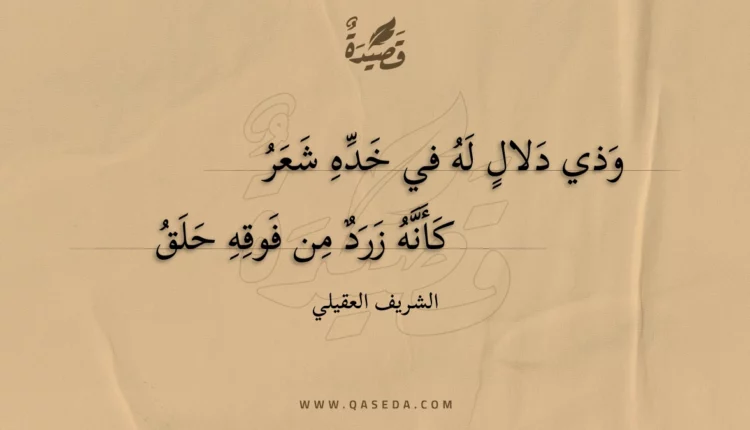 قَصِيدَةٌ
وَذي دَلالٍ لَهُ في خَدِّهِ شَعَرُ
كَأَنَّهُ زَرَدٌ مِن فَوقِهِ حَلَقُ
الشريف العقيلي
WWW.QASEDA.COM